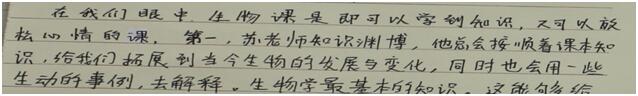 在我们眼中,生物课是即可以学到知识,又可以放
松心情的课。第一,苏老师知识渊博,他总会接顺着课本知
识,给我们拓展到当今生物的发展与变化,同时也会用一些
生动的事例,去解释。生物学最基本的知识。这能够给